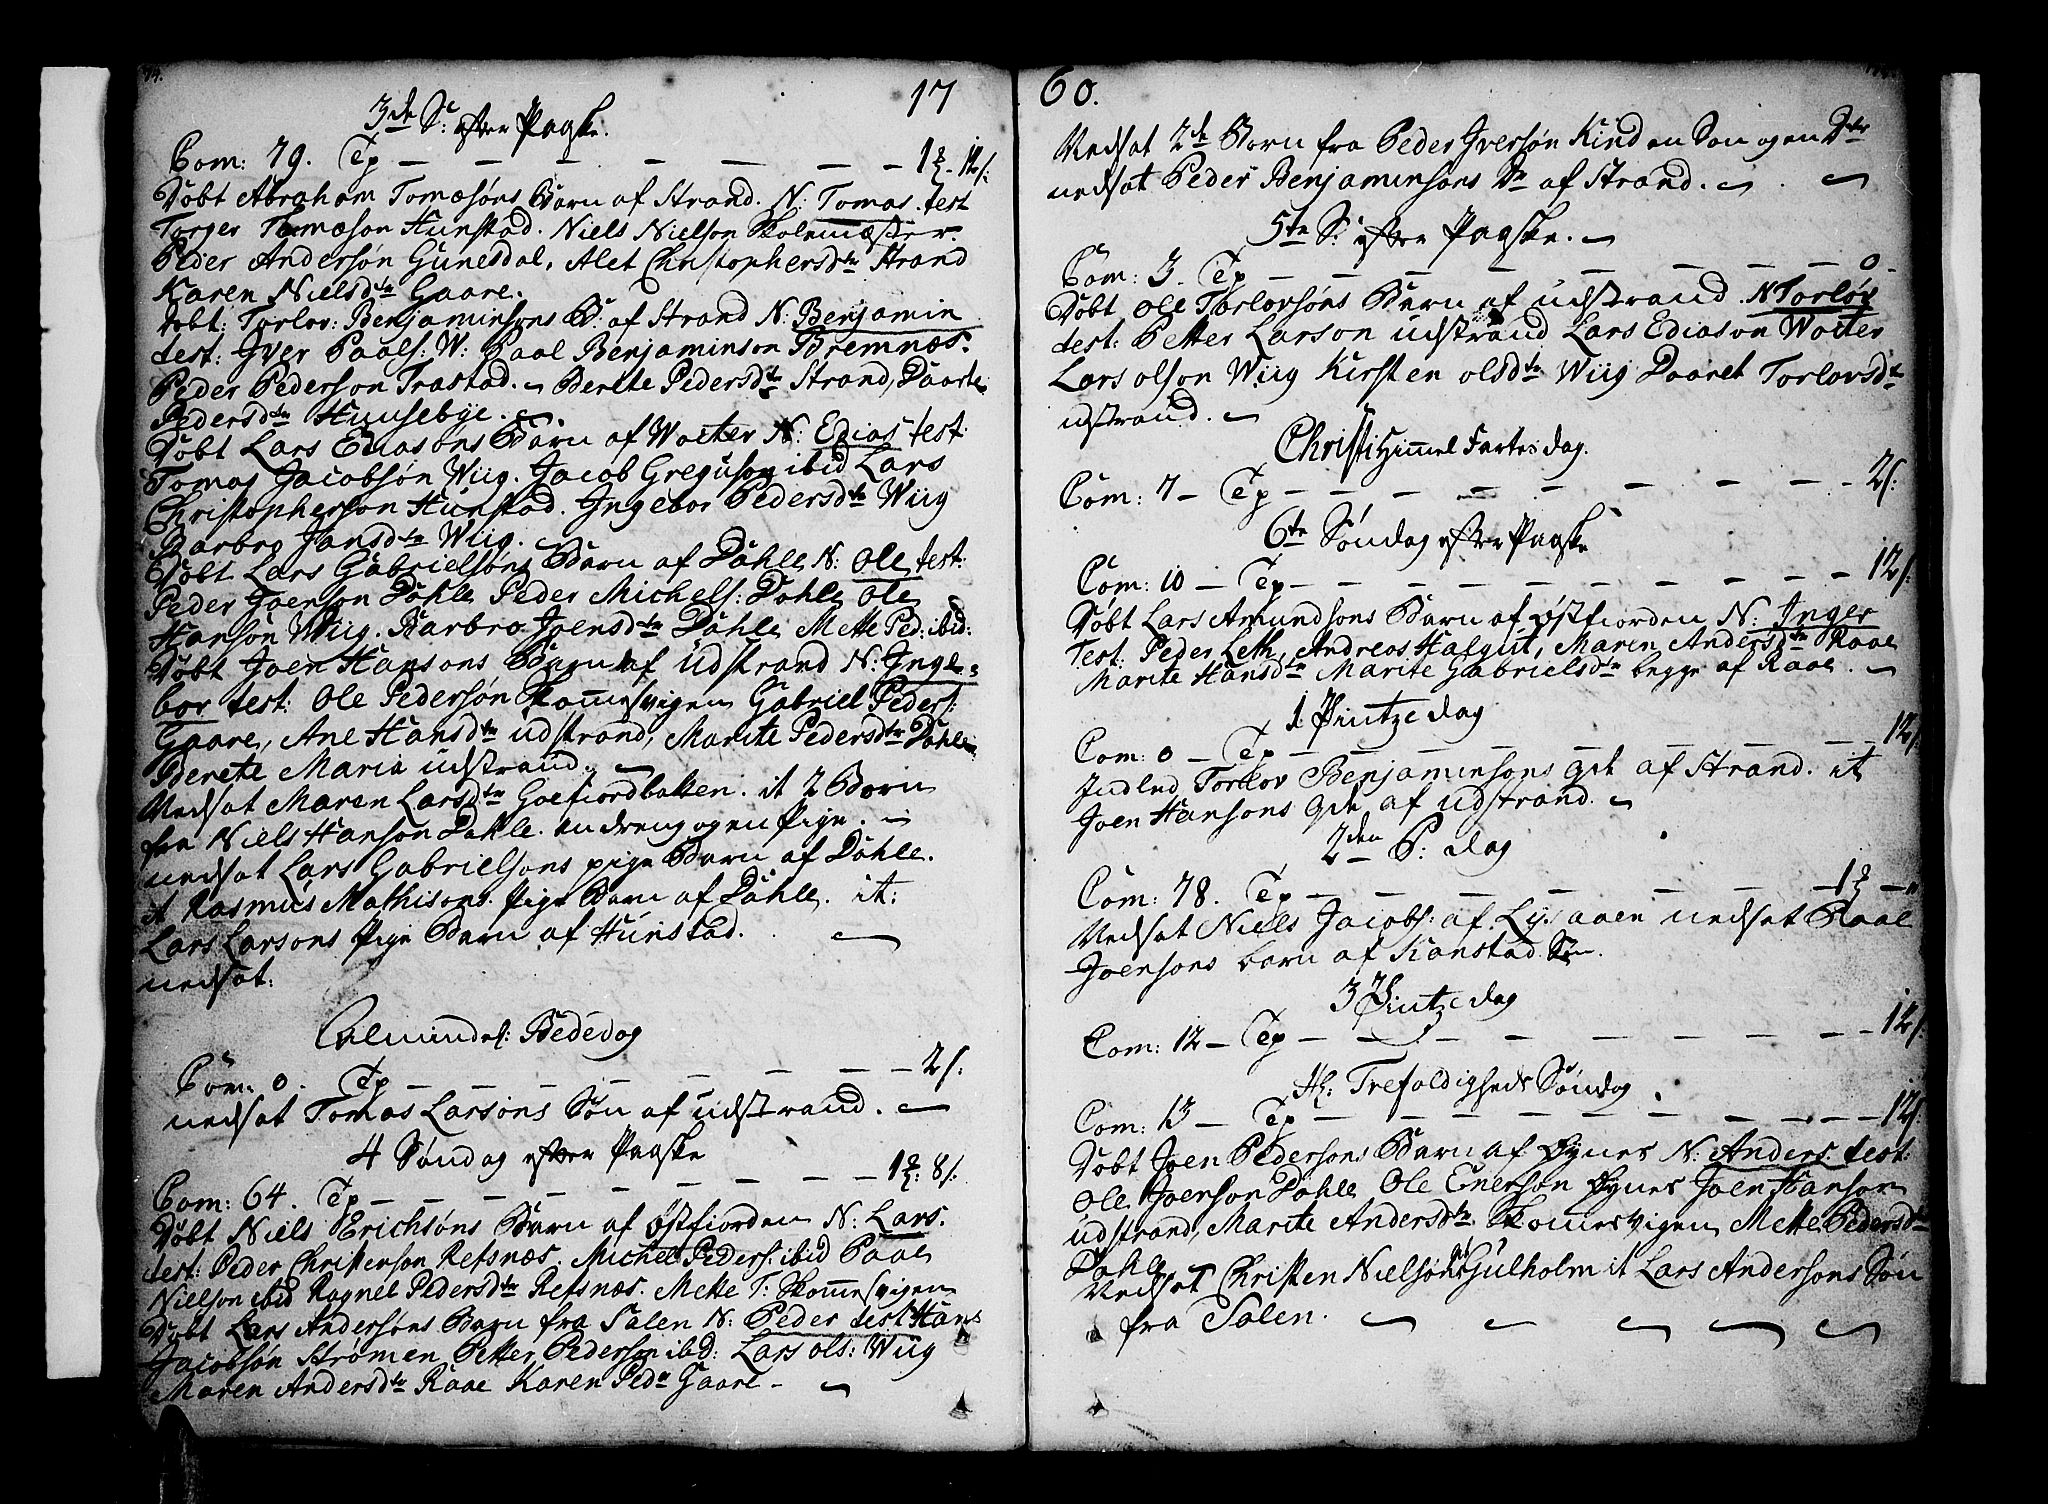 17
3de S: efter Paaske.
Com: 79. Tp — — — — — — 12/.
Döbt Abraham Tomæsöns Barn af Strand. N: Tomas. test
Torger Tomæson Hunstad. Niels Nielson Skolemæster.
Peder Andersön Gunesdal, Alet Christophersdtr Strand
Karen Nielsdtr Gaare.
Döbt: Torlov: Benjaminsons B: af Strand N: Benjamin
test: Jver Paals: W: Paal Benjaminson Bremnæs.
Peder Pederson Trastad. Berete Pedersdtr Strand, Daarte
Pedersdtr Huusebye.
Döbt Lars Ediasöns Barn af Wolter N: Edias test:
Tomas Jacobsön Wiig. Jacob Greguson ibid Lars
Christopherson Hunstad. Ingebor Pedersdtr Wiig
Barbro Jansdtr Wiig.
Döbt Lars Gabrielsöns Barn af Döhle N: Ole test:
Peder Joenson Döhle Peder Michels: Döhle Ole
Hansön Wiig. Barbro Joensdtr Döhle Mette Ped: ibid:
Döbt Joen Hansons Barn af udstrand N: Inge-
bor test: Ole Pedersön Skomesvigen Gabriel Peders:
Gaare, Ane Hansdtr udstrand, Marite Pedersdtr Döhle
Berete Maria udstrand.
Nedsat Maren Larsdtr Goefiordbotten. it 2 Börn
fra Niels Hanson Döhle. en dreng og en Pige.
nedsat Lars Gabrielsons pige Barn af Döhle.
it Rasmus Mathisons Pige Barn af Döhle. it:
Lars Larsons Pige Barn af Hunstad.
nedsat:
Almindel: Bededag
Com: 0. Tp — — — — — — 2/.
nedsat Tomas Larsons Sön af udstrand.
4 Söndag efter Paaske
Com: 64. Tp — — — — — — 8/.
Döbt Niels Erichsöns Barn af Østfiorden N: Lars.
test: Peder Christenson Refsnæs. Michel Peders: ibid Paal
Nielson ibid Ragnel Pedersdtr Refsnæs. Mette T: Skomesvigen
Döbt Lars Andersöns Barn fra Salen N: Peder test Hans
Jacobsön Strömen Petter Pederson ibid: Lars ols: Wiig
Maren Andersdtr Raae Karen Ped: Gaare
60.
Nedsat 2de Börn fra Peder Jversön Kind en Sön og en Dtr
nedsat Peder Benjaminsöns Dr af Strand.
5te S: efter Paaske.
Com: 3. Tp — — — — — — 0
Döbt Ole Torlovsöns Barn af udstrand N Torlöv
test: Petter Larson udstrand Lars Ediason Wolter
Lars olson Wiig Kirsten olsdtr Wiig Daaret Torlovsdtr
udstrand.
Christi Himmel Fartes dag.
Com: 7 — Tp — — — — — — 2/.
6te Söndag efter Paaske
Com: 10 — Tp — — — — — — 12/.
Döbt Lars Amundsöns Barn af Østfiorden N: Inger
Test: Peder Leth, Andreas Hafgut, Maren Andersdtr Raae
Marite Hansdtr Marite Gabrielsdtr begge af Raae
1 Pintze dag
Com: 0 — Tp — — — — — — 12/.
Indled Torlov Benjaminsons qde af Strand. it
Joen Hansons qde af udstrand.
2den P: dag
Com: 78. Tp — — — — — —
Nedsat Niels Jacobs: af nedsat Paal
Joensons barn af Kanstad
3 Pintze dag
Com: 12 — Tp — — — — — — 12/.
H: Trefoldigheds Söndag
Com: 13 — Tp — — — — — — 12/.
Döbt Joen Pedersons Barn af Øynes N: Anders. test:
Ole Joenson Döhle Ole Enerson Øynes Joen Hanson
udstrand, Marite Andersdtr Skomesvigen Mette Pedersdtr
Döhle
Nedsat Christen Nielson Gulholm it Lars Andersons Sön
fra Salen.